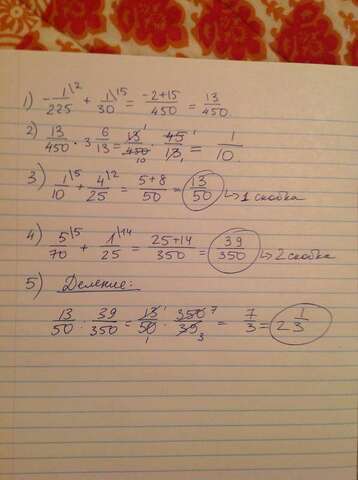 1) -1\2/225 + 1\15/30 = -2+15/450 = 13/450
2) 13/450 · 3 6/13 = 13 1/450 10 · 45 1/13 1 = 1/10
3) 1\5/10 + 4\2/25 = 5+8/50 = 13/50 ↳ 1 скобка
4) 5\5/70 + 1\14/25 = 25+14/350 = 39/350 ↳ 2 скобка
5) Деление:
13/50 : 39/350 = 13 1/50 1 · 350 7/39 3 = 7/3 = 2 1/3